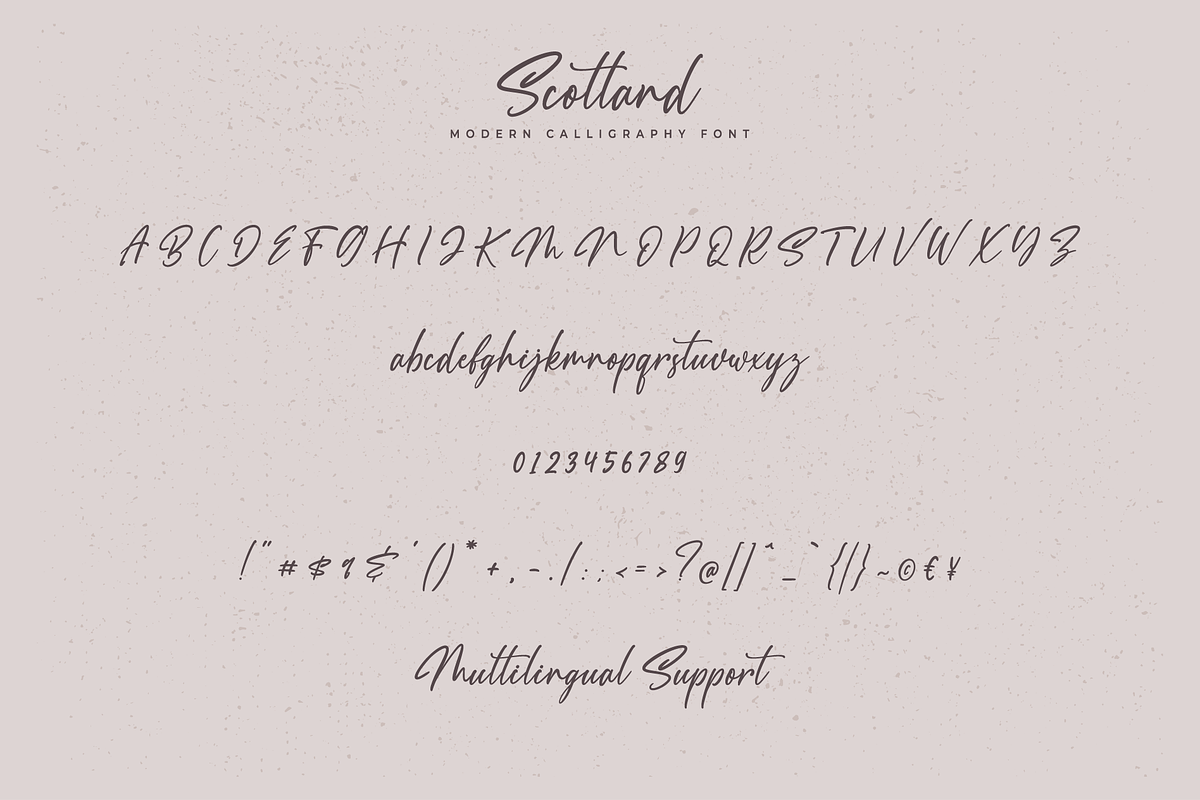 Scotland
MODERN CALLIGRAPHY FONT
ABCDEFGHIJKMNOPQRSTUVWXYZ
abcdefghijkmnopqrstuvwxyz
0123456789
! " # $ & ' ( ) * + , - . / : ; < = > ? @ [ ] ^ _ ` { | } ~ © € ¥
Multilingual Support